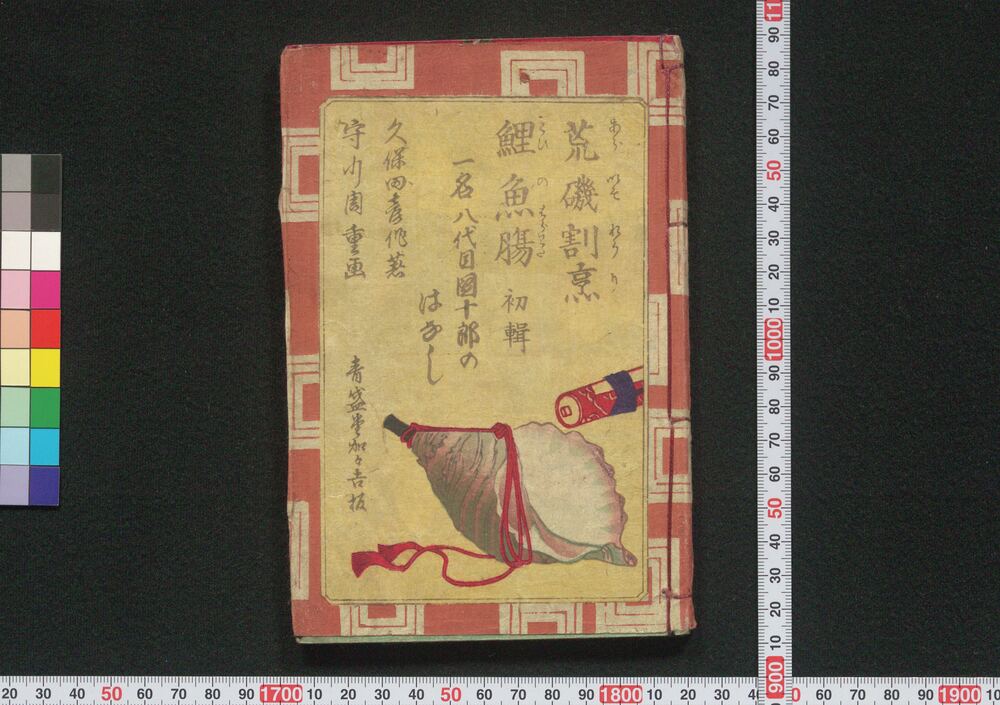 荒磯割烹
あらいそれうり
鯉魚膓 初輯
こひのはらわた
一名八代目團十郎の
はなし
久保田彦作著
守川周重画
青盛堂加々吉板
11
90
80
70
60
50
40
30
20
10
1000
90
80
70
60
50
40
30
20
10
900
20 30 40 50 60 70 80 90 1700 10 20 30 40 50 60 70 80 90 1800 10 20 30 4 0 60 70 80 90 1900 10